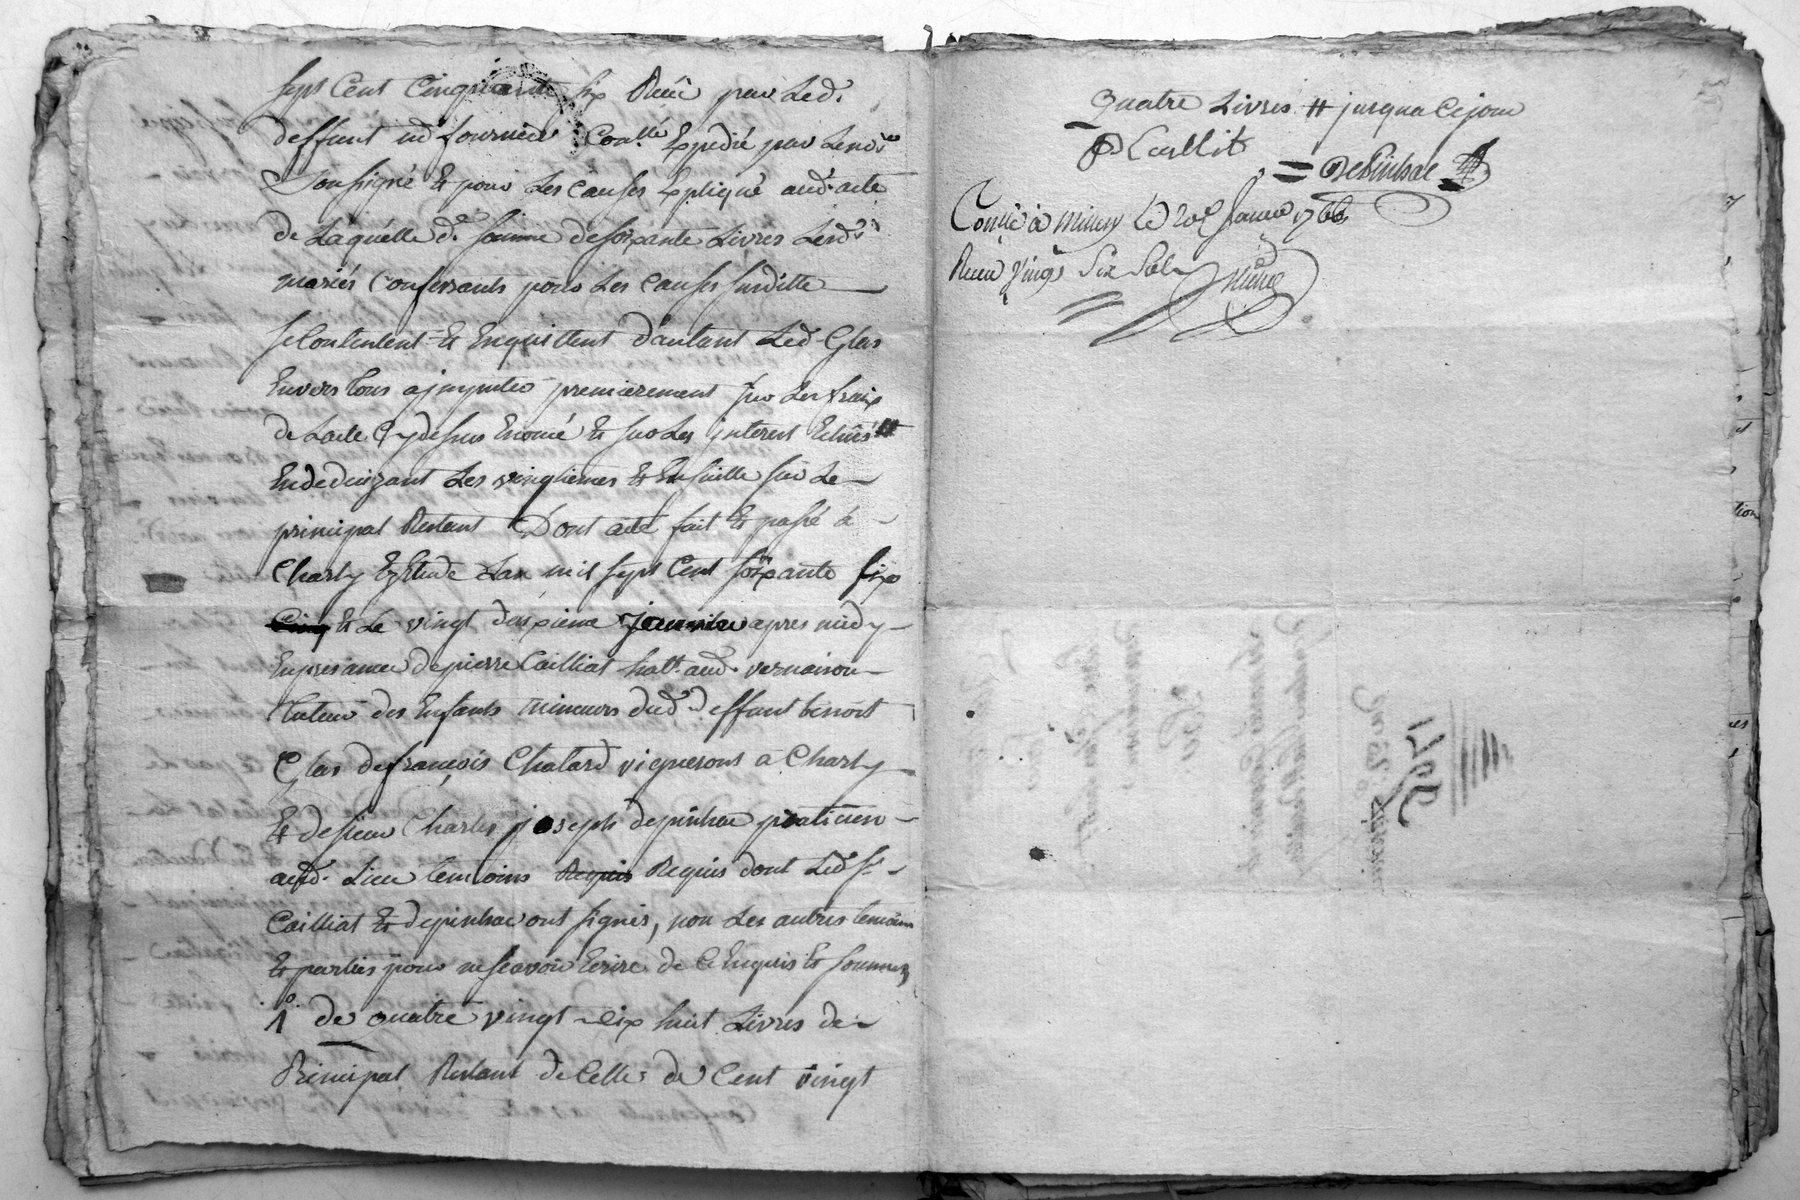 sept Cent Cinquante six Receu par Led.
deffunt me fournier Con.llé Expedié par Lenore
Soussigné Et pour Les causes Expliqué aud. acte
de Laquelle d.e somme de soixante Livres Lesd.
mariés Confessants pour Les causes susditte
se Contentent Et Enquittent d'autant Led. Glas
Envers tous a jmputer premierement sur Les fraix
de Lacte Cy dessus Enoncé Et sur Les jnterest Echus #
En deduizant Les vingtiemes Et Ensuitte sur Le
principal Restant Dont acte fait Et passé à
Charly Estude Lan mil sept Cent soixante six
Cinq Et Le vingt deuxieme janvier apres midy
En presance de pierre Cailliat hatt. aud. vernaison
tuteur des Enfants mineurs dud. deffunt benoit
Glas de françois Chatard vignerons à Charly
Et de sieur Charles joseph depinhac praticien
aud. Lieu temoins Requis Requis dont Led. sr.
Cailliat Et depinhac ont signés, non Les autres temoins
Et parties pour ne sçavoir Ecrire de ce Enquis Et sommés
1° de quatre vingt dix huit Livres de
Principal Restant de Celle de Cent vingt
quatre Livres # jusqua Ce jour
P Calliat
Depinhac
Con.llé à Millery Le 20e Janvier 1766
Receu vingt Six Sols
1765